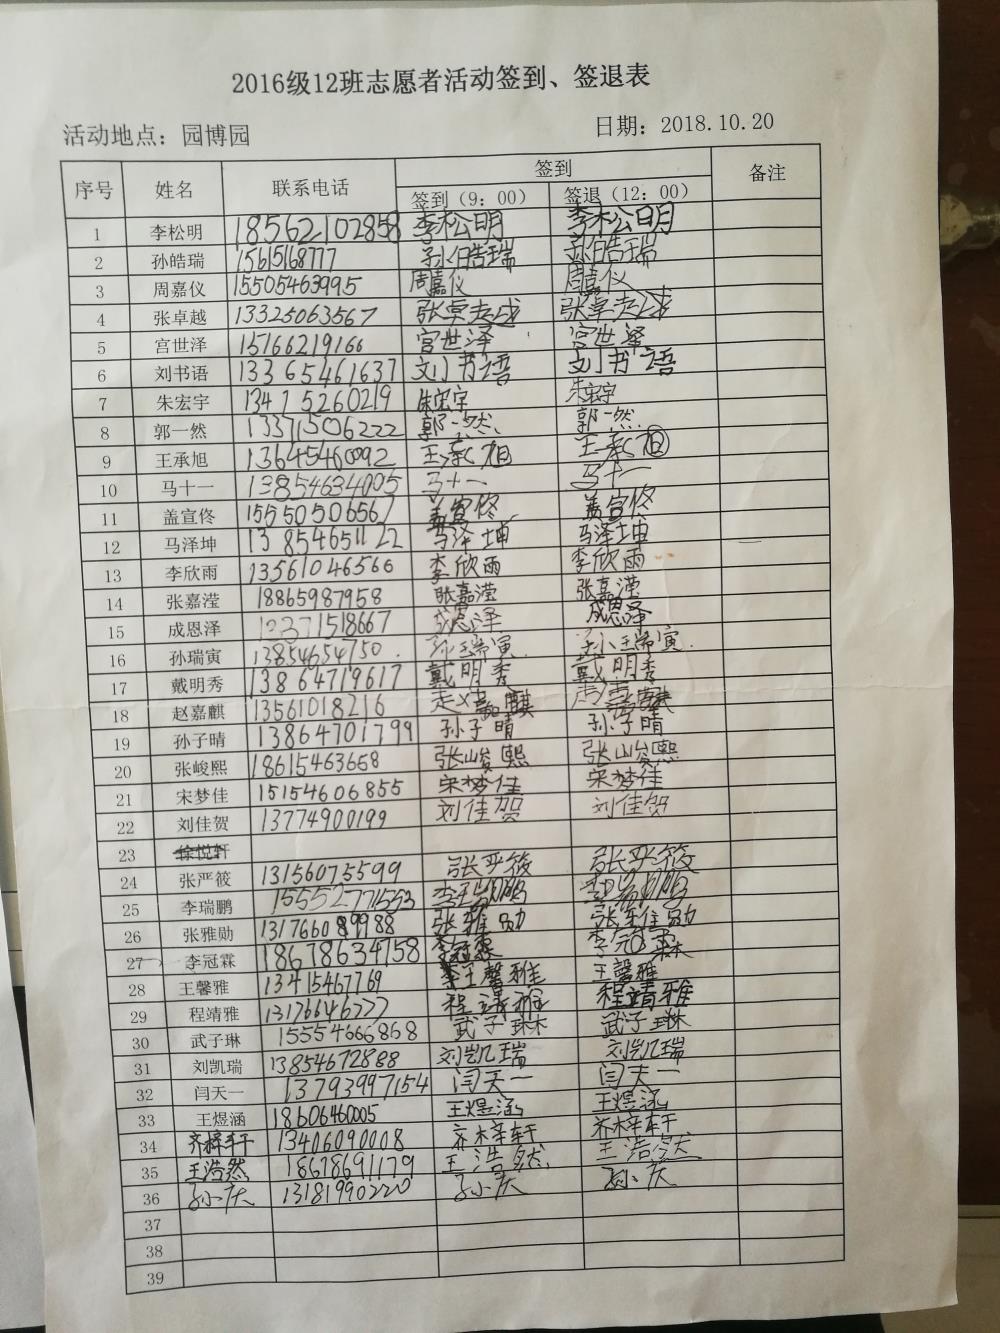 2016级12班志愿者活动签到、签退表
活动地点：园博园 日期：2018.10.20
序号 姓名 联系电话 签到 备注
签到（9：00） 签退（12：00）
1 李松明 18562102858 李松明 李松明
2 孙皓瑞 15615168777 孙皓瑞 孙皓瑞
3 周嘉仪 15505463995 周嘉仪 周嘉仪
4 张卓越 13325063567 张卓越 张卓越
5 宫世泽 15166219166 宫世泽 宫世泽
6 刘书语 13365461637 刘书语 刘书语
7 朱宏宇 13475260219 朱宏宇 朱宏宇
8 郭一然 13371506222 郭一然 郭一然
9 王承旭 13645460092 王承旭 王承旭
10 马十一 13854634005 马十一 马十一
11 盖宣佟 15550506567 盖宣佟 盖宣佟
12 马泽坤 13854651122 马泽坤 马泽坤
13 李欣雨 13561046566 李欣雨 李欣雨
14 张嘉滢 18865987958 张嘉滢 张嘉滢
15 成恩泽 13371518667 成恩泽 成恩泽
16 孙瑞寅 13854654750 孙瑞寅 孙瑞寅
17 戴明秀 13864719617 戴明秀 戴明秀
18 赵嘉麒 13561018216 赵嘉麒 赵嘉麒
19 孙子晴 13864701799 孙子晴 孙子晴
20 张峻熙 18615463658 张峻熙 张峻熙
21 宋梦佳 15154606855 宋梦佳 宋梦佳
22 刘佳贺 13774900199 刘佳贺 刘佳贺
23 徐悦轩
24 张严筱 13156075599 张严筱 张严筱
25 李瑞鹏 15552771553 李瑞鹏 李瑞鹏
26 张雅勋 13176609988 张雅勋 张雅勋
27 李冠霖 18678634758 李冠霖 李冠霖
28 王馨雅 13415467769 王馨雅 王馨雅
29 程靖雅 13176646777 程靖雅 程靖雅
30 武子琳 15554666868 武子琳 武子琳
31 刘凯瑞 13854672888 刘凯瑞 刘凯瑞
32 闫天一 13793997154 闫天一 闫天一
33 王煜涵 18606460005 王煜涵 王煜涵
34 齐梓轩 13406090008 齐梓轩 齐梓轩
35 王浩然 18678691179 王浩然 王浩然
36 孙小庆 13181990220 孙小庆 孙小庆
37
38
39